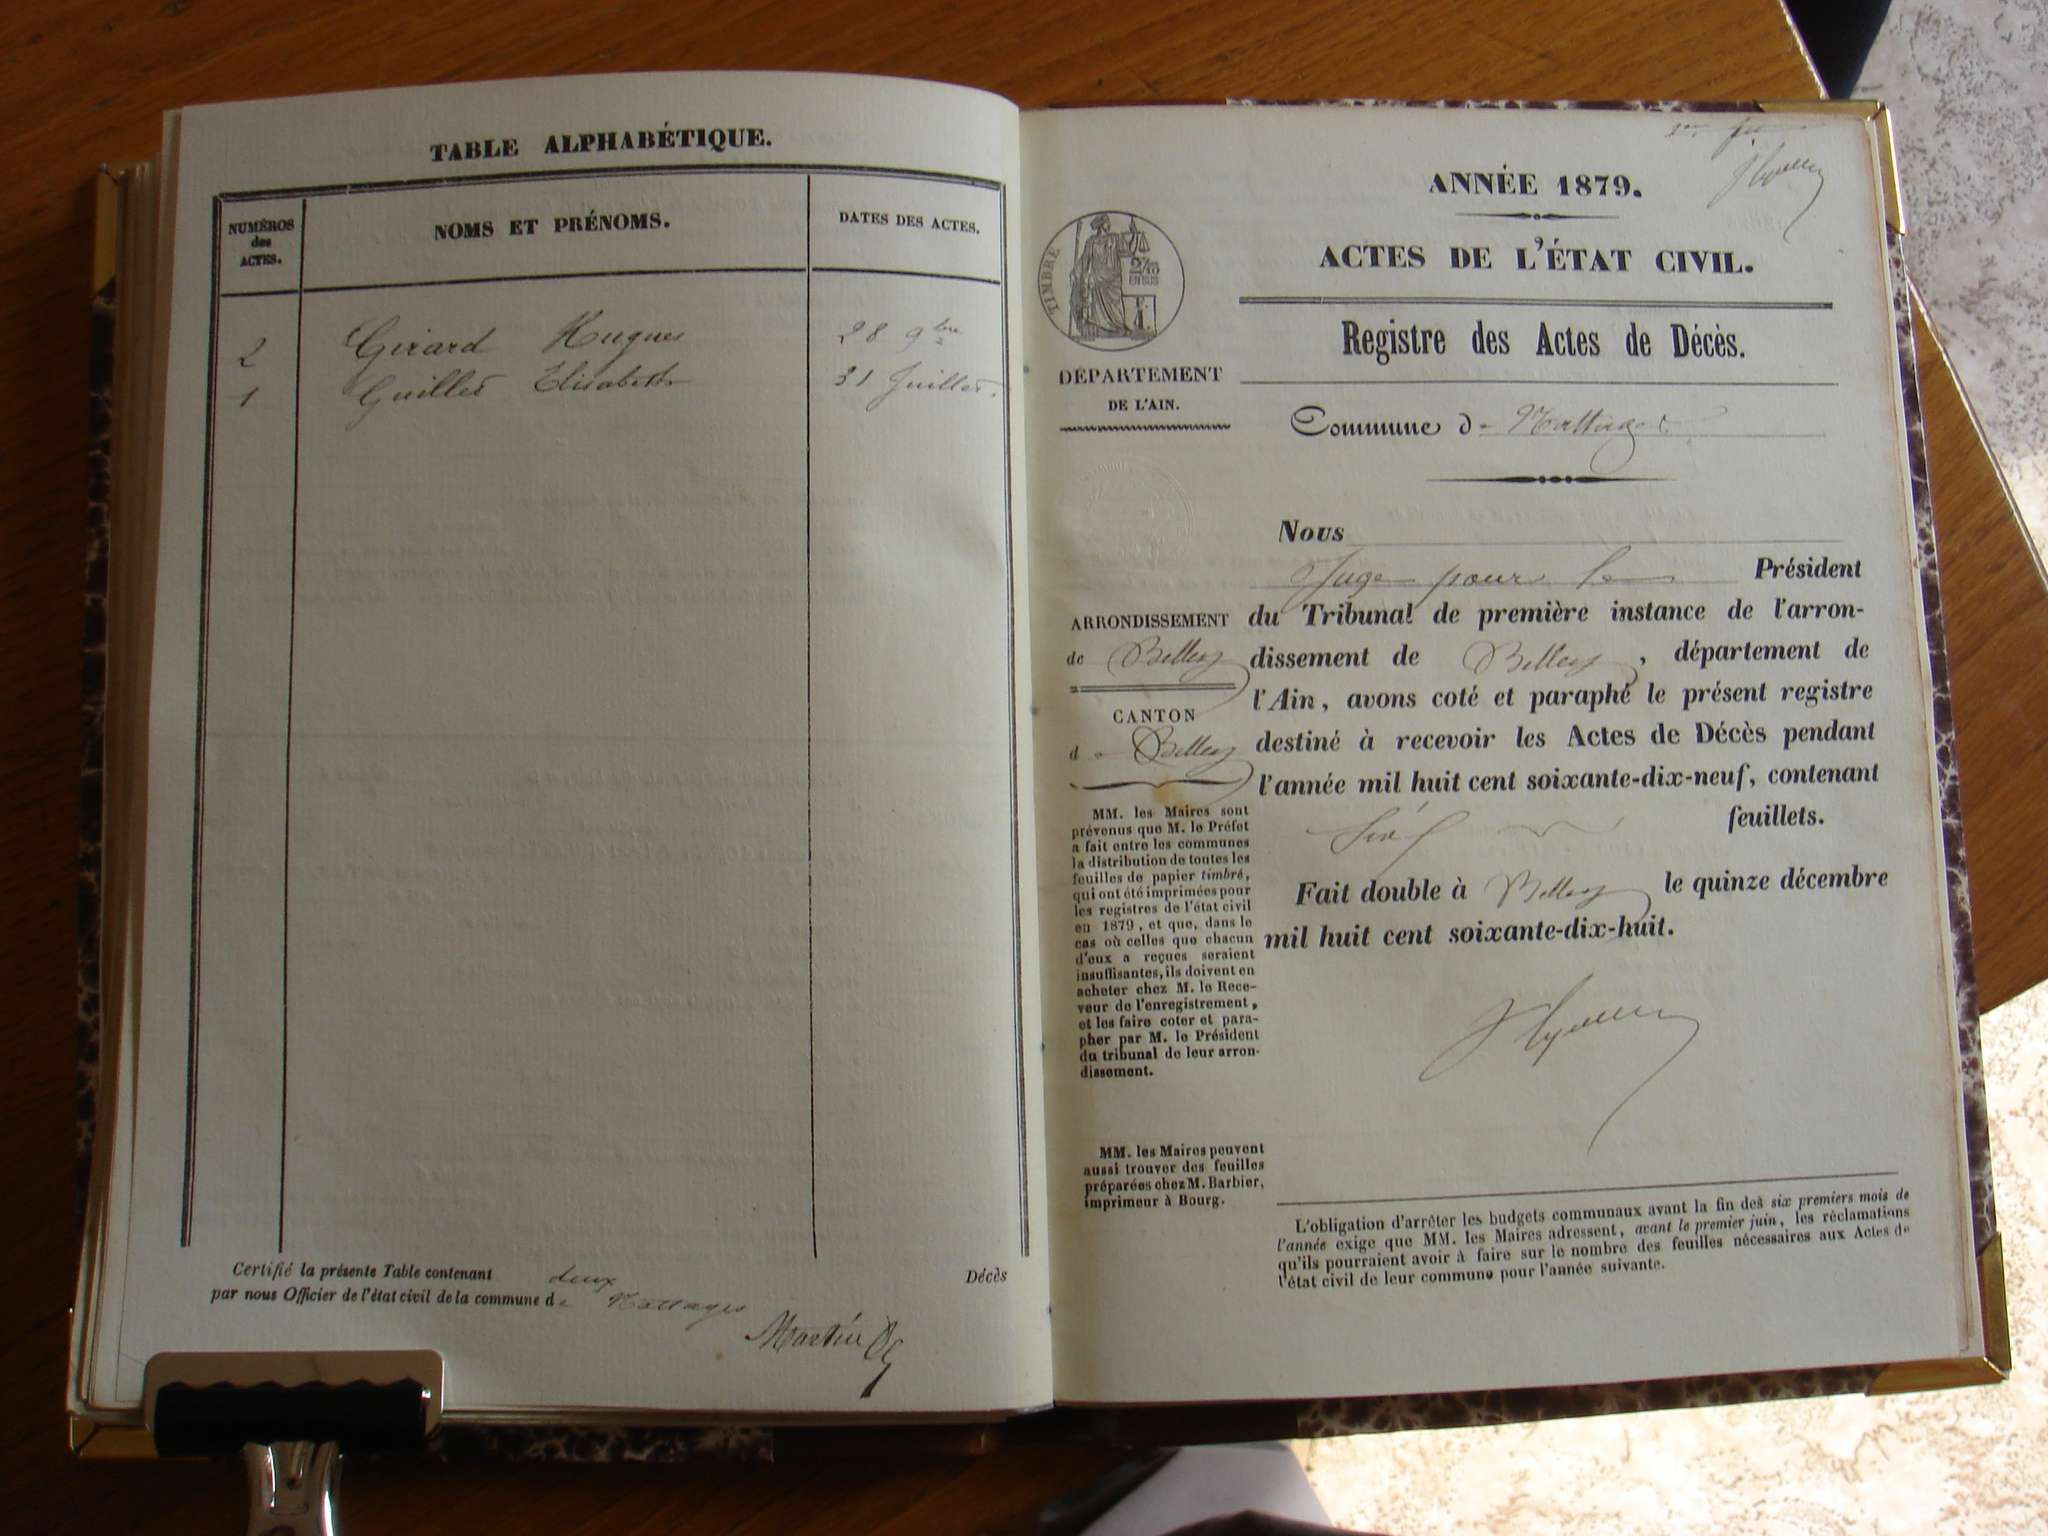 TABLE ALPHABÉTIQUE.
NUMÉROS
des
ACTES.
NOMS ET PRÉNOMS.
DATES DES ACTES.
2 Girard Hugues 28 9bre
1 Guillet Elisabeth 31 Juillet.
Certifié la présente Table contenant deux Décès
par nous Officier de l'état civil de la commune de Nattages
Martin
ANNÉE 1879.
ACTES DE L'ÉTAT CIVIL.
Registre des Actes de Décès.
TIMBRE
2/10
EN SUS
DÉPARTEMENT
DE L'AIN.
Commune de Nattages
Nous
Juge pour le Président
du Tribunal de première instance de l'arron-
dissement de Belley, département de
l'Ain, avons coté et paraphé le présent registre
destiné à recevoir les Actes de Décès pendant
l'année mil huit cent soixante-dix-neuf, contenant
feuillets.
Fait double à Belley le quinze décembre
mil huit cent soixante-dix-huit.
ARRONDISSEMENT
de Belley
CANTON
de Belley
MM. les Maires sont
prévenus que M. le Préfet
a fait entre les communes
la distribution de toutes les
feuilles de papier timbré,
qui ont été imprimées pour
les registres de l'état civil
en 1879, et que, dans le
cas où celles que chacun
d'eux a reçues seraient
insuffisantes, ils doivent en
acheter chez M. le Rece-
veur de l'enregistrement,
et les faire coter et para-
pher par M. le Président
du tribunal de leur arron-
dissement.
MM. les Maires peuvent
aussi trouver des feuilles
préparées chez M. Barbier,
imprimeur à Bourg.
L'obligation d'arrêter les budgets communaux avant la fin des six premiers mois de
l'année exige que MM. les Maires adressent, avant le premier juin, les réclamations
qu'ils pourraient avoir à faire sur le nombre des feuilles nécessaires aux Actes de
l'état civil de leur commune pour l'année suivante.